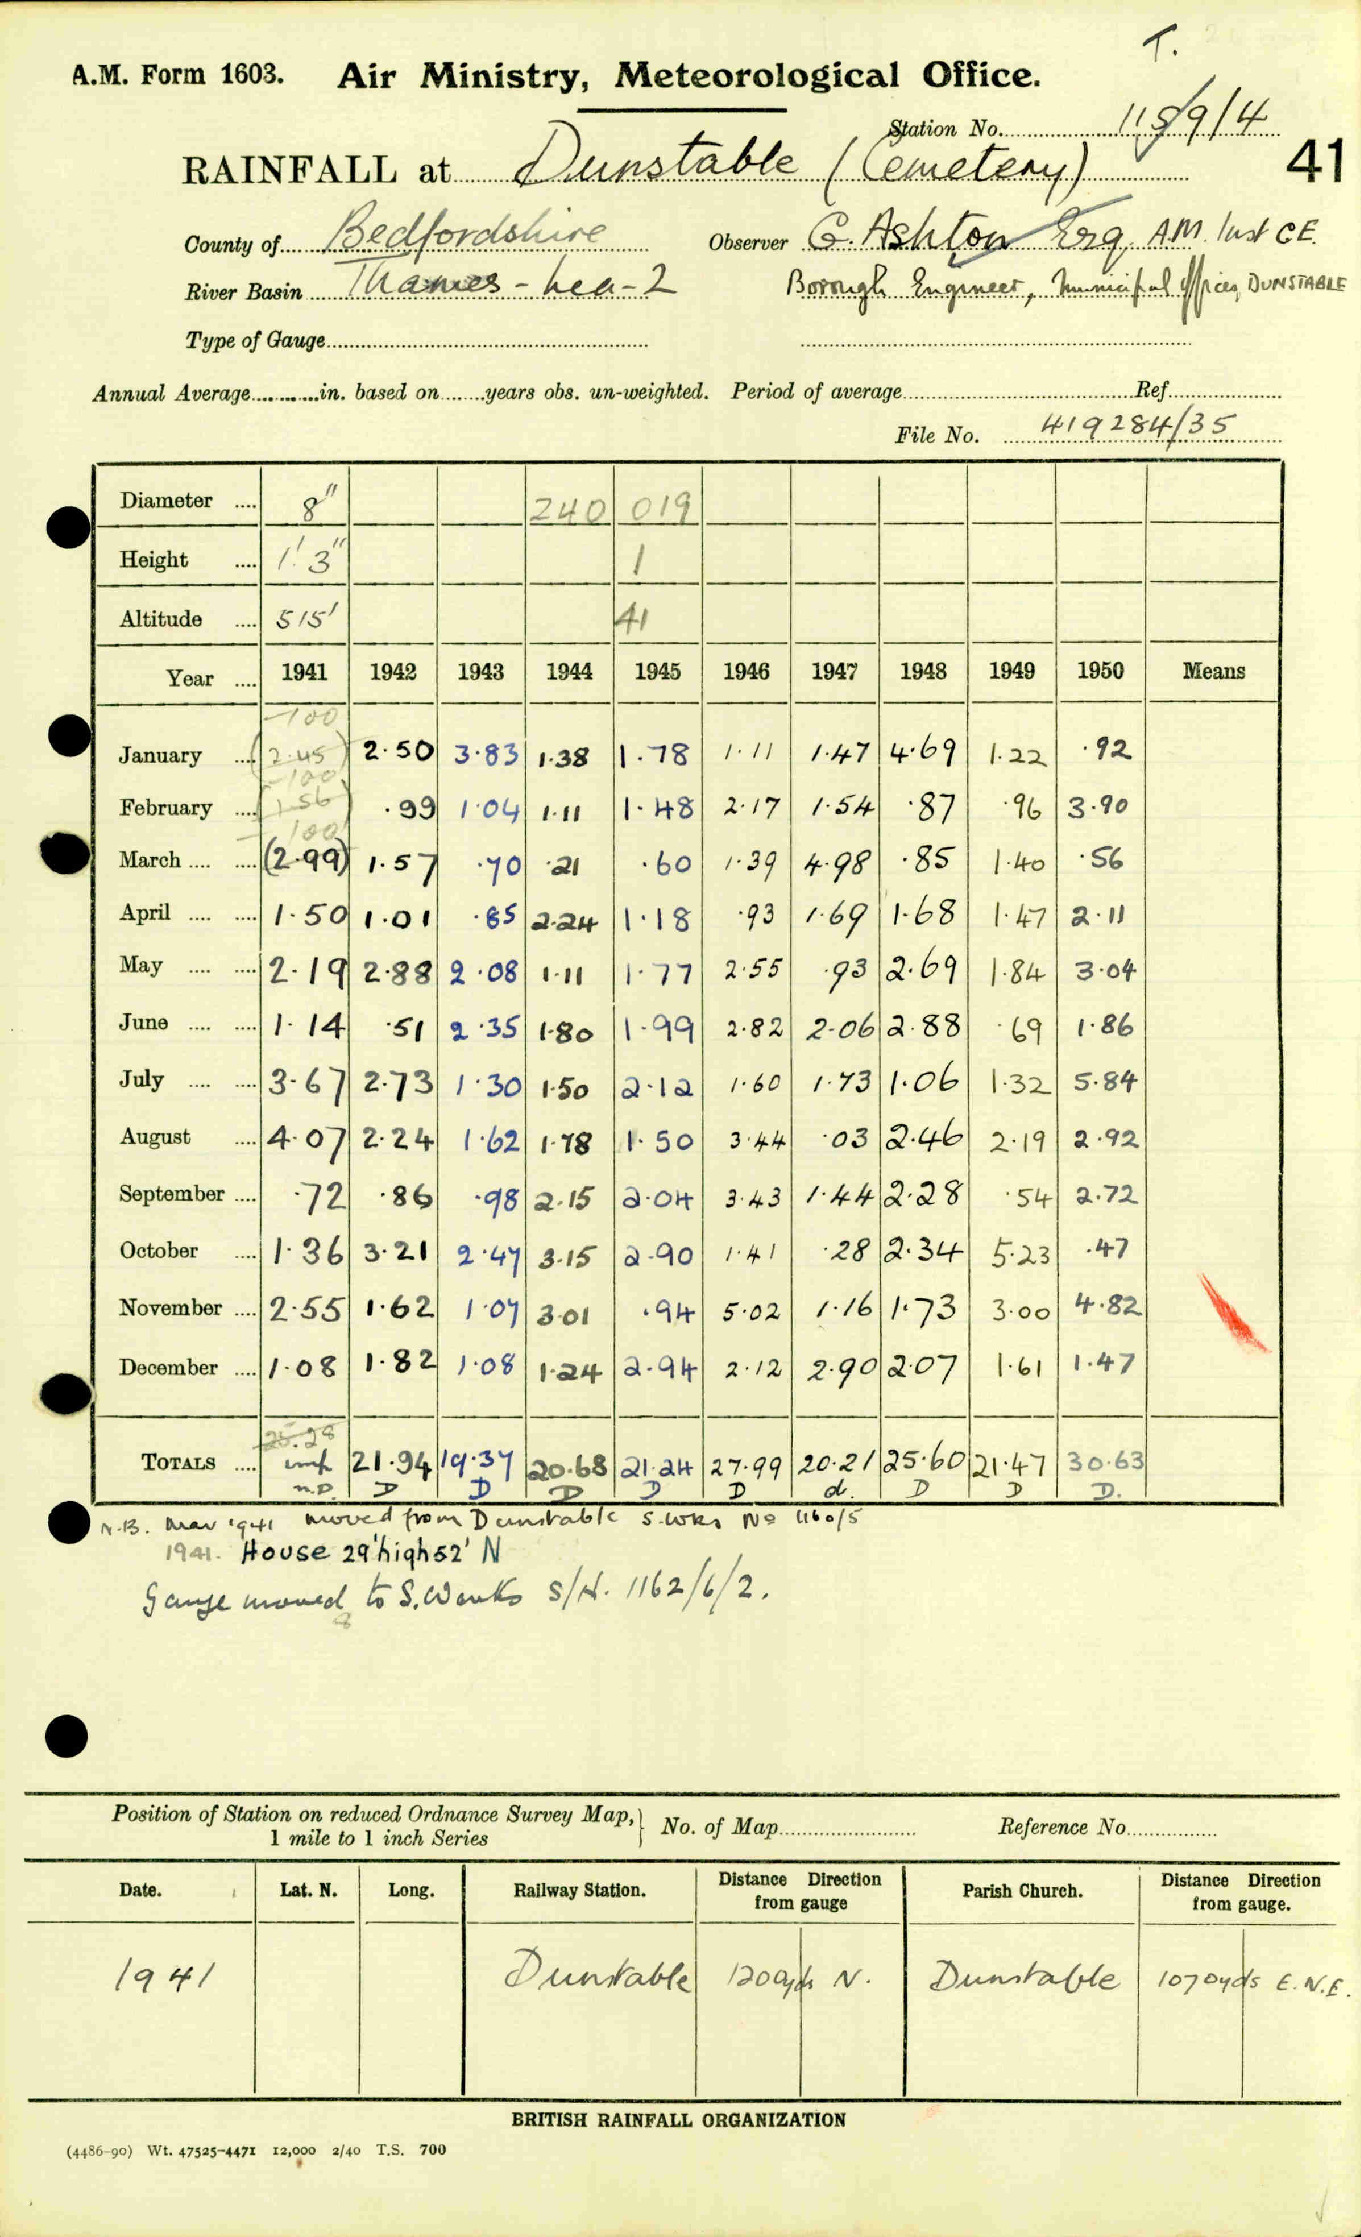 T.
A.M. Form 1603. Air Ministry, Meteorological Office.
Station No. 115/9/4
41
RAINFALL at Dunstable (Cemetery)
County of Bedfordshire Observer G. Ashton Esq A.M. Inst C.E.
River Basin Thames - Lea - 2 Borough Engineer, Municipal Offices, DUNSTABLE
Type of Gauge
Annual Average in. based on years obs. un-weighted. Period of average Ref.
File No. 419284/35
Diameter .... 8" 240 019
Height .... 1' 3" 1
Altitude .... 515' 41
Year .... 1941 1942 1943 1944 1945 1946 1947 1948 1949 1950 Means
-100
January .... (2.45) 2.50 3.83 1.38 1.78 1.11 1.47 4.69 1.22 .92
-100
February .... (1.56) .99 1.04 1.11 1.48 2.17 1.54 .87 .96 3.90
-100
March .... .... (2.99) 1.57 .70 .21 .60 1.39 4.98 .85 1.40 .56
April .... .... 1.50 1.01 .85 2.24 1.18 .93 1.69 1.68 1.47 2.11
May .... .... 2.19 2.88 2.08 1.11 1.77 2.55 .93 2.69 1.84 3.04
June .... .... 1.14 .51 2.35 1.80 1.99 2.82 2.06 2.88 .69 1.86
July .... .... 3.67 2.73 1.30 1.50 2.12 1.60 1.73 1.06 1.32 5.84
August .... 4.07 2.24 1.62 1.78 1.50 3.44 .03 2.46 2.19 2.92
September .... .72 .86 .98 2.15 2.04 3.43 1.44 2.28 .54 2.72
October .... 1.36 3.21 2.47 3.15 2.90 1.41 .28 2.34 5.23 .47
November .... 2.55 1.62 1.07 3.01 .94 5.02 1.16 1.73 3.00 4.82
December .... 1.08 1.82 1.08 1.24 2.94 2.12 2.90 2.07 1.61 1.47
25.28
TOTALS .... imp 21.94 19.37 20.68 21.24 27.99 20.21 25.60 21.47 30.63
n.D. D D D D D d. D D D.
N.B. Mar 1941 moved from Dunstable S. Wks No 1160/5
1941. House 29' high 52' N
Gauge moved to S. Works S/N. 1162/6/2.
8
Position of Station on reduced Ordnance Survey Map, } No. of Map Reference No.
1 mile to 1 inch Series
Date. Lat. N. Long. Railway Station. Distance Direction from gauge Parish Church. Distance Direction from gauge.
1941 Dunstable 1200yds N. Dunstable 1070yds E.N.E.
BRITISH RAINFALL ORGANIZATION
(4486-90) Wt. 47525-4471 12,000 2/40 T.S. 700